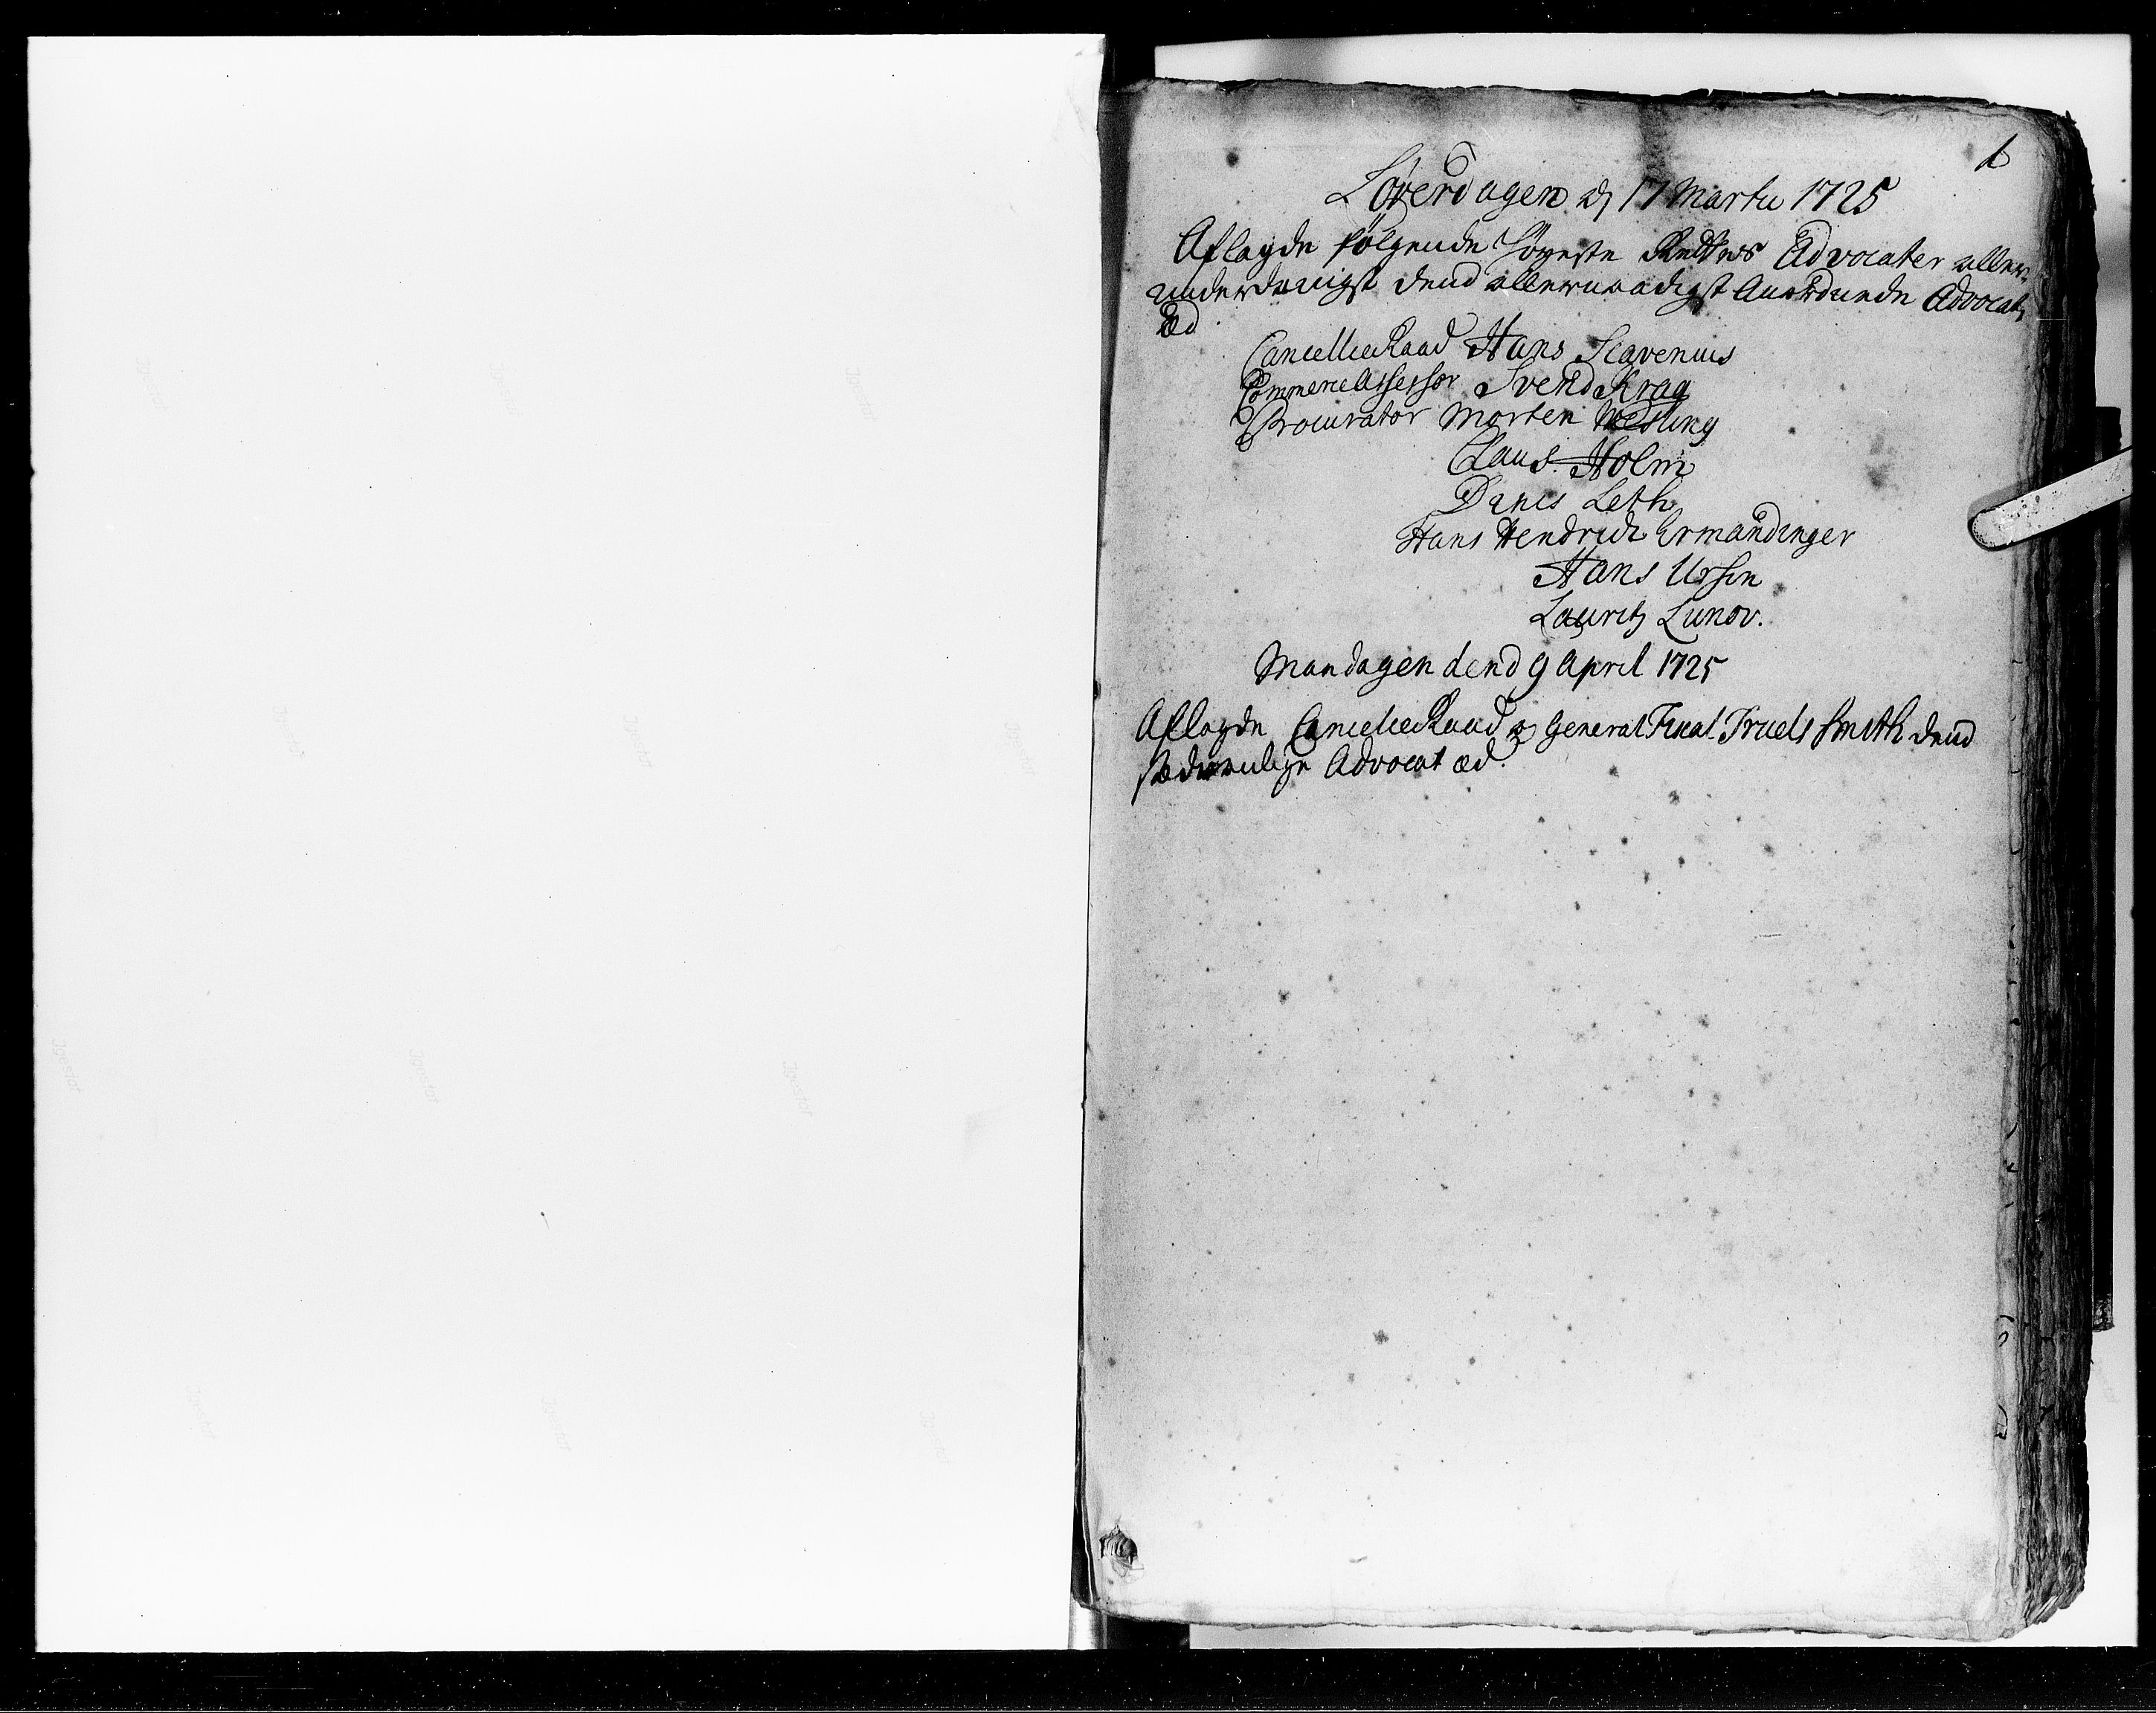 1
Løverdagen d 17 Martii 1725
Aflagde følgende Høyeste Rettes Advocater aller-
underdanigst dend allernaadigst Anordnede Advocat
Æd
CancellieRaad Hans Scavenius
CommerceAssessor Svend Krag
Procurator Morten Wesling
Claus Holm
Denis Leth
Hans Hendrich Ermandinger
Hans Ursin
Lauritz Lunov.
Mandagen dend 9 April 1725
Aflagde CancellieRaad og General Fiscal Truels Smith dend
sædvanlige Advocat æd.